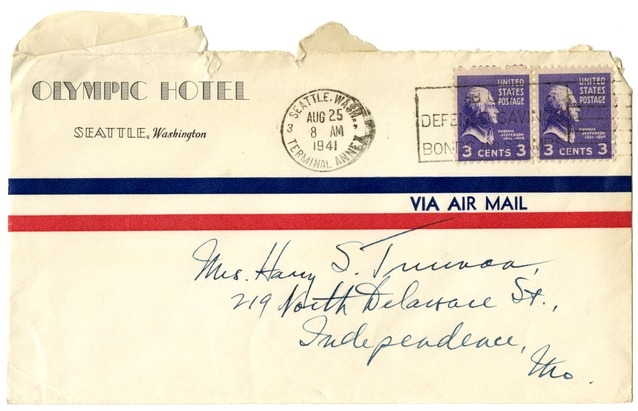 OLYMPIC HOTEL
SEATTLE, Washington
SEATTLE, WASH.
3
AUG 25
8 AM
1941
TERMINAL ANNEX
DEFENSE SAVINGS
BONDS
UNITED STATES POSTAGE
THOMAS JEFFERSON
3 CENTS 3
UNITED STATES POSTAGE
THOMAS JEFFERSON
3 CENTS 3
VIA AIR MAIL
Mrs. Harry S. Truman,
219 North Delaware St.,
Independence,
Mo.